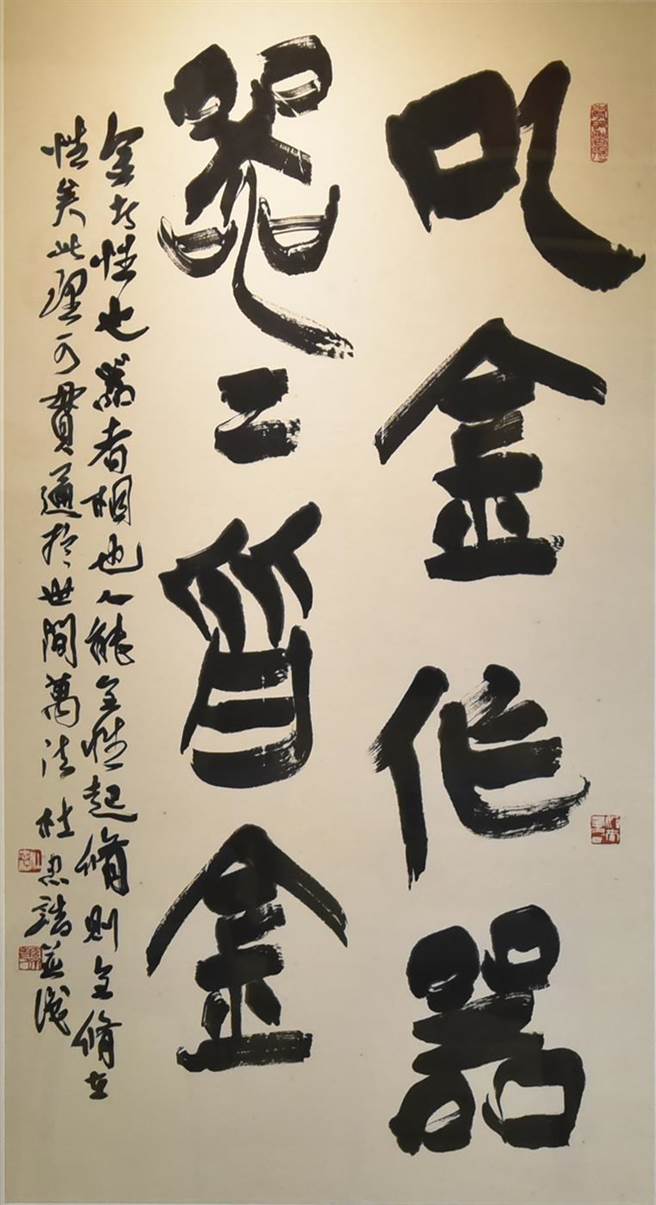 以金作器
器〻皆金
金者性也器者相也人能全性起脩則全脩在
性矣此理可貫通於世間萬法 杜忠誥並識